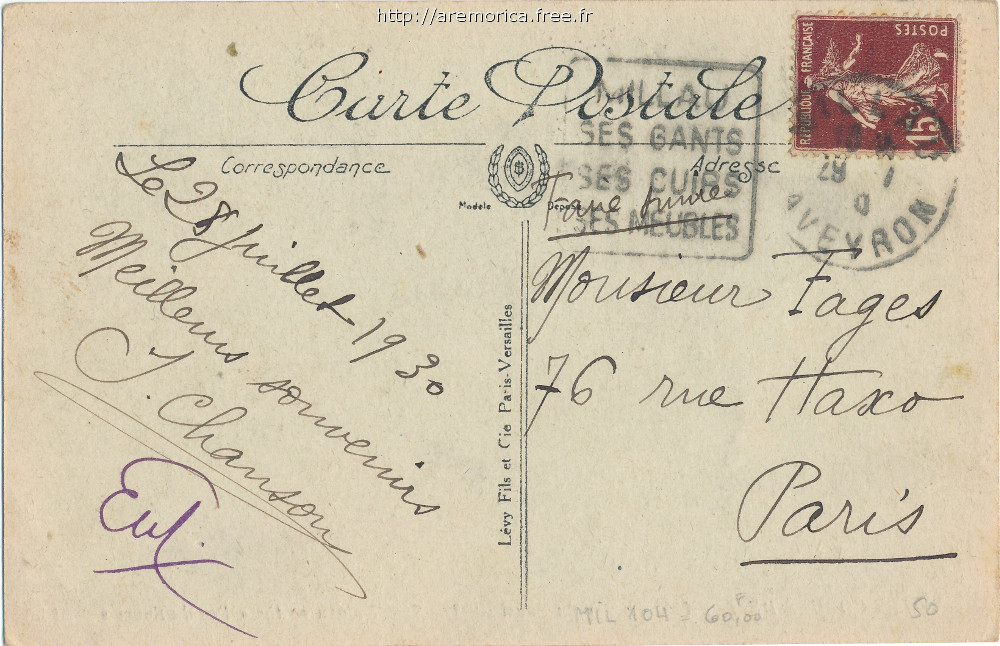 http://aremorica.free.fr
Carte Postale
Correspondance
Adresse
Modèle Déposé
REPUBLIQUE FRANÇAISE
POSTES
15c
MILLAU
SES GANTS
SES CUIRS
SES MEUBLES
AVEYRON
Le 28 juillet 1930
Meilleurs souvenirs
J. Chanson
Lévy Fils et Cie Paris-Versailles
Monsieur Fages
76 rue Haxo
Paris
MIL 104
60,00
50